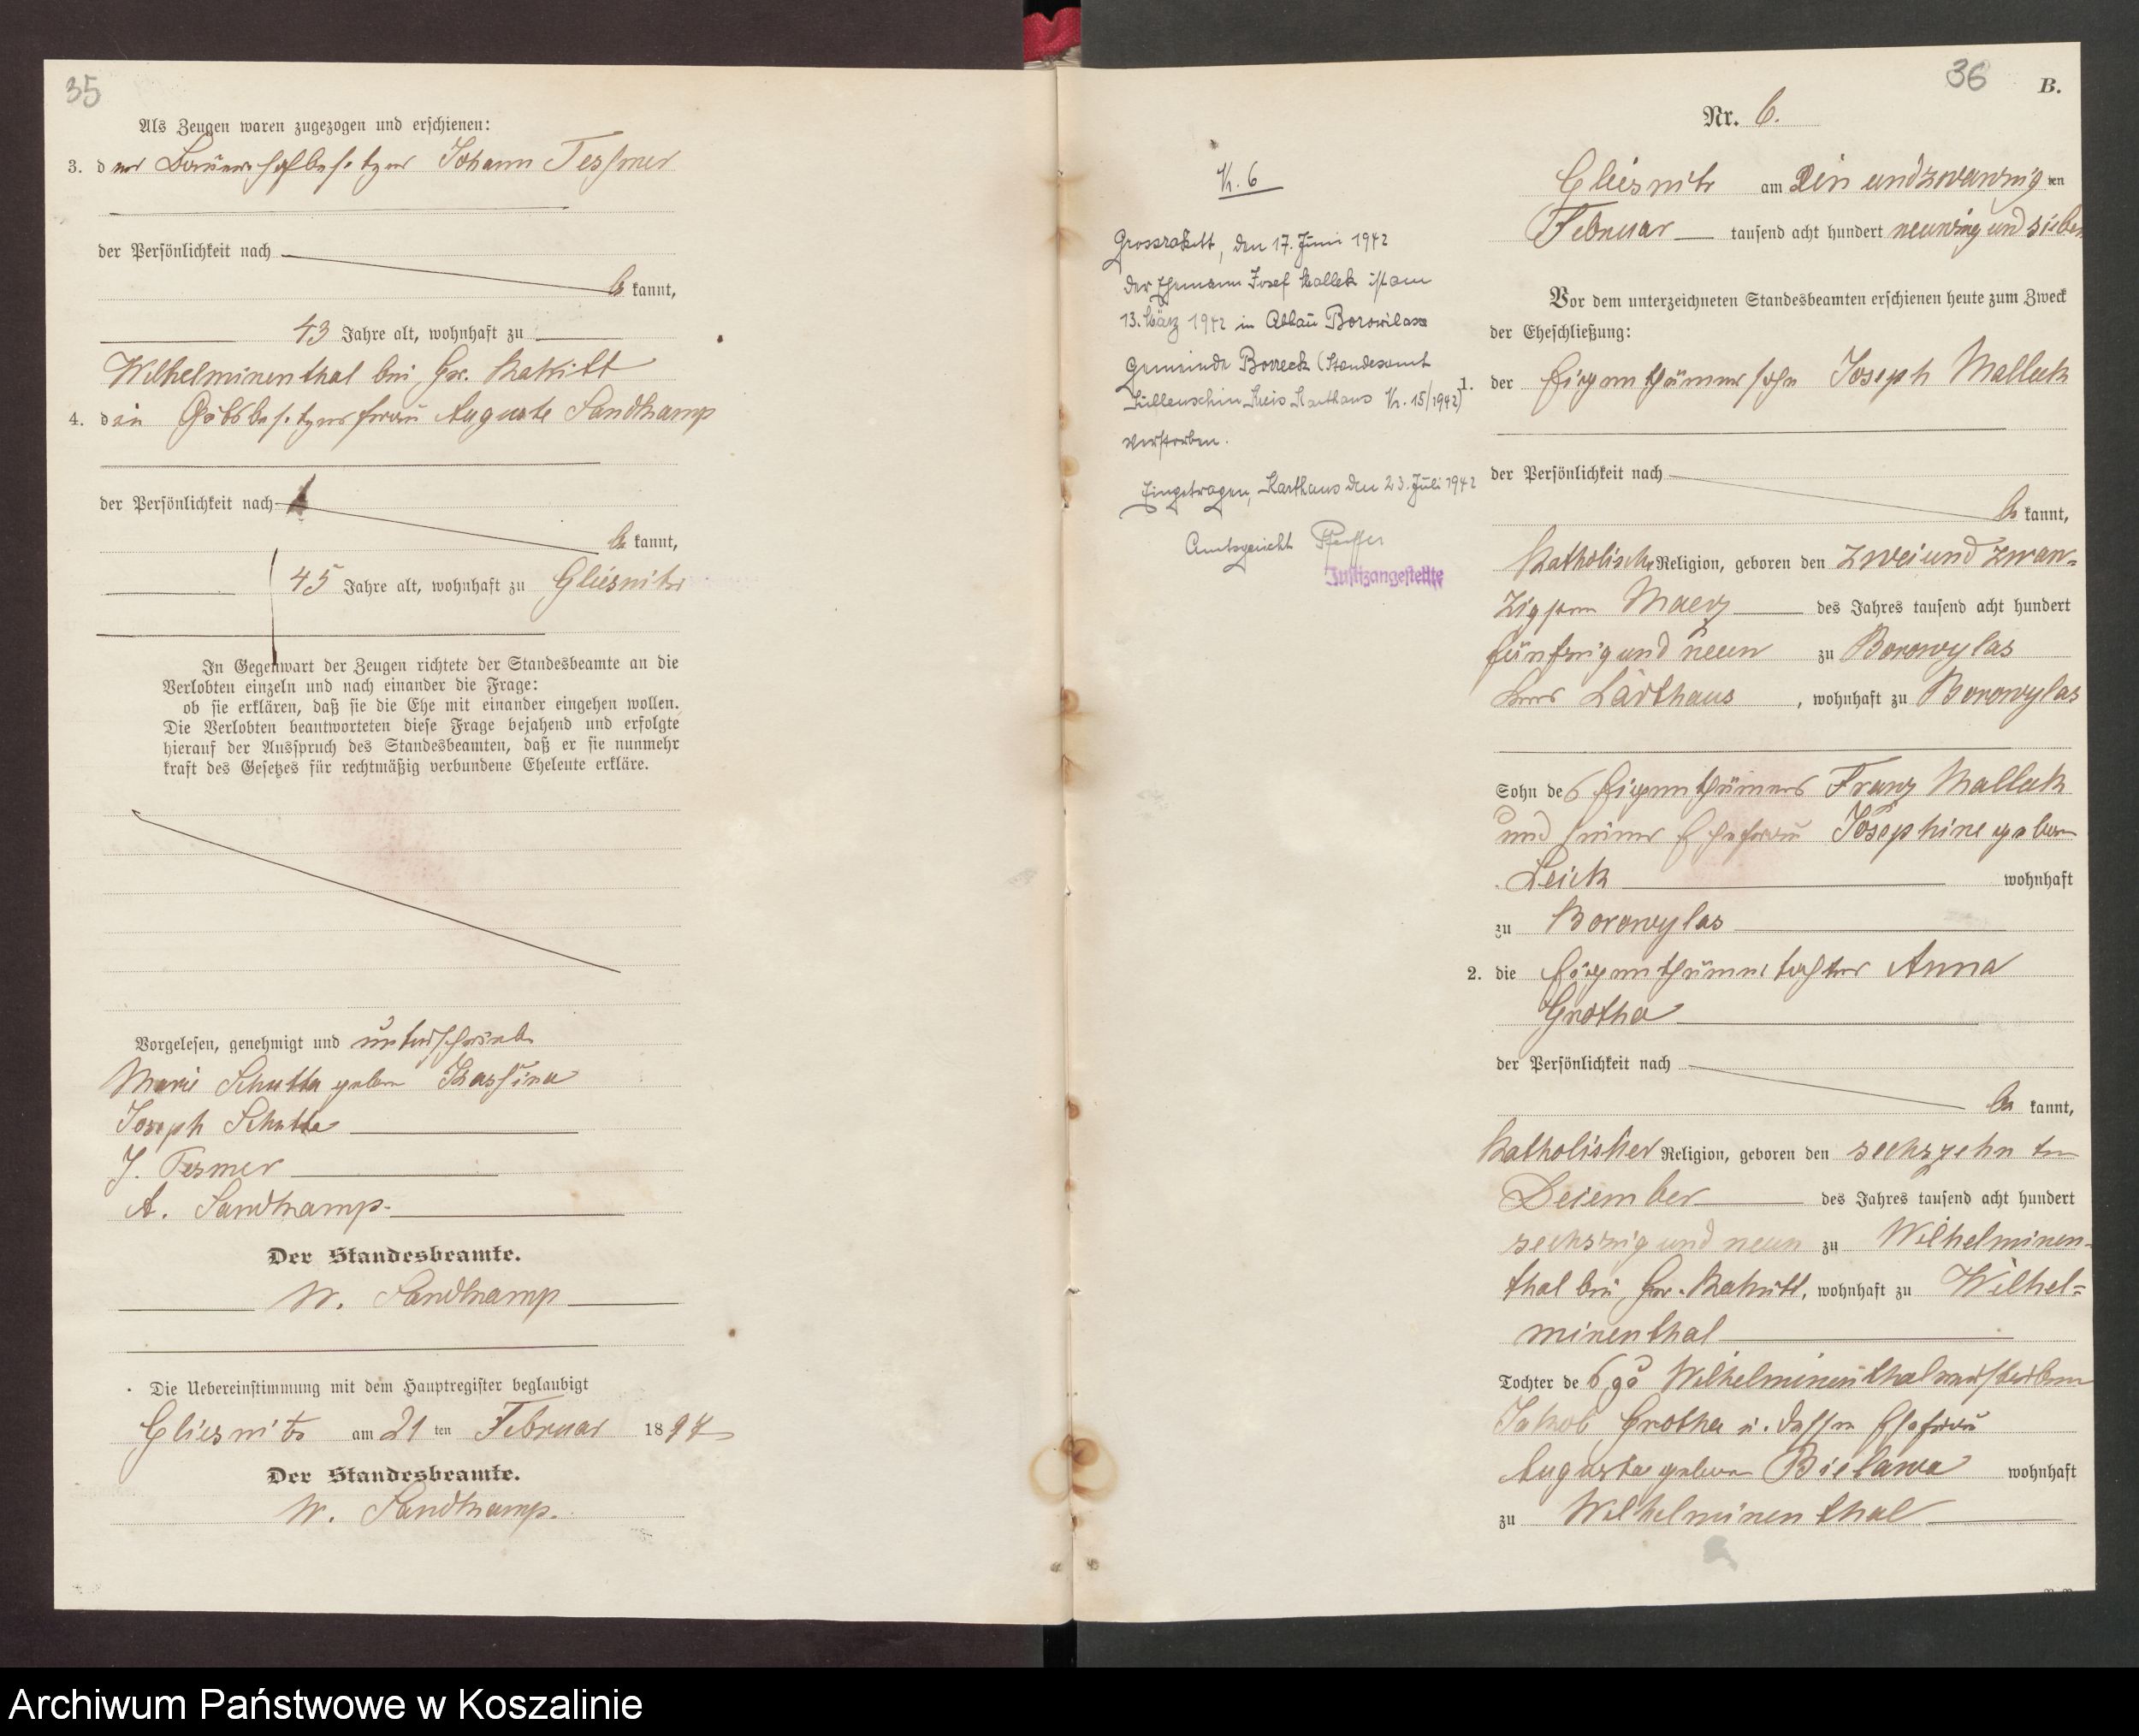 35
Als Zeugen waren zugezogen und erschienen:
3. der Bauernhofbesitzer Johann Tessmer
der Persönlichkeit nach
be kannt,
43 Jahre alt, wohnhaft zu
Wilhelminenthal bei Gr. Rakitt
4. die Gutsbesitzersfrau Auguste Sandkamp
der Persönlichkeit nach
be kannt,
45 Jahre alt, wohnhaft zu Gliesnitz
In Gegenwart der Zeugen richtete der Standesbeamte an die
Verlobten einzeln und nach einander die Frage:
ob sie erklären, daß sie die Ehe mit einander eingehen wollen.
Die Verlobten beantworteten diese Frage bejahend und erfolgte
hierauf der Ausspruch des Standesbeamten, daß er sie nunmehr
kraft des Gesetzes für rechtmäßig verbundene Eheleute erkläre.
Vorgelesen, genehmigt und unterschrieben
Marie Schutta geboren
Joseph Schutta
J. Tesmer
A. Sandkamp.
Der Standesbeamte.
W. Sandkamp
Die Uebereinstimmung mit dem Hauptregister beglaubigt
Gliesnitz am 21 ten Februar 1897
Der Standesbeamte.
W. Sandkamp.
Nr. 6
Grossrakitt, den 17. Juni 1942
Der Ehemann Josef Mallek ist am
13. März 1942 in Abbau Borowilass
Gemeinde Borreck (Standesamt
Süllenschin Kreis Karthaus Nr. 15/1942)
verstorben.
Eingetragen, Karthaus den 23. Juli 1942
Amtsgericht Pfeiffer
Justizangestellte
36
B.
Nr. 6.
Gliesnitz am Ein undzwanzig ten
Februar tausend acht hundert neunzig und sieben
Vor dem unterzeichneten Standesbeamten erschienen heute zum Zweck
der Eheschließung:
1. der Eigenthümersohn Joseph Mallek
der Persönlichkeit nach
be kannt,
Katholischer Religion, geboren den zwei und zwan-
zigsten Maerz des Jahres tausend acht hundert
fünfzig und neun zu Borowylas
Kreis Carthaus, wohnhaft zu Borowylas
Sohn des Eigenthümers Franz Mallek
und seiner Ehefrau Josephine geboren
Leick wohnhaft
zu Borowylas
2. die Eigenthümertochter Anna
Grotha
der Persönlichkeit nach
be kannt,
Katholischer Religion, geboren den sechszehn ten
Dezember des Jahres tausend acht hundert
sechszig und neun zu Wilhelminen-
thal bei Gr. Rakitt, wohnhaft zu Wilhel-
minenthal
Tochter des zu Wilhelminenthal verstorbenen
Jakob Grotha u. dessen Ehefrau
Auguste geboren Bielawa wohnhaft
zu Wilhelminenthal
Archiwum Państwowe w Koszalinie